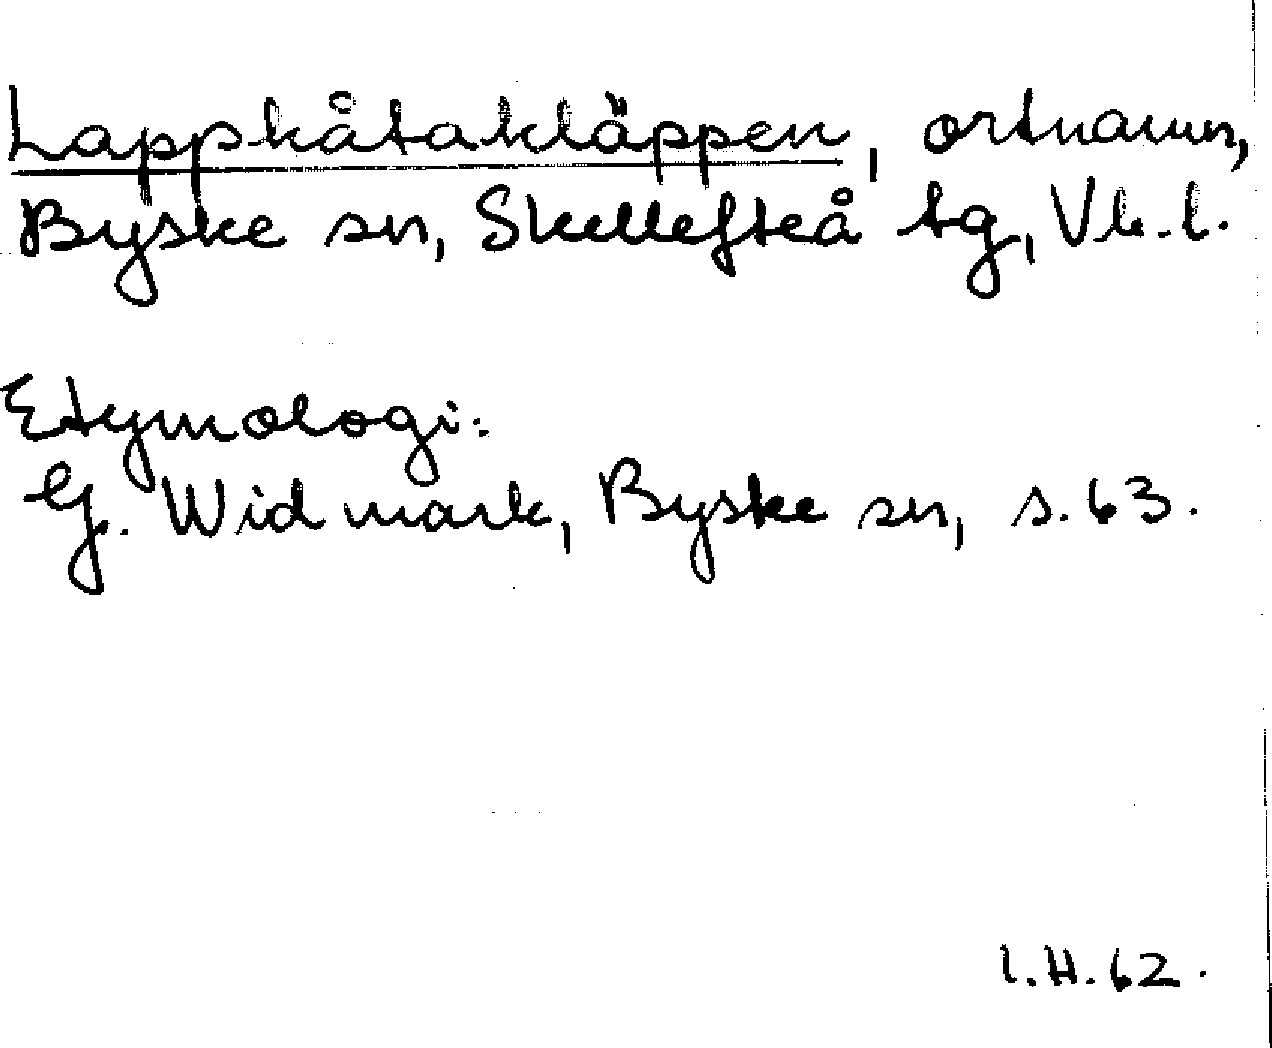 Lappkåtakläppen, ortnamn,
Byske sn, Skellefteå tg, Vb. l.
Etymologi:
G. Widmark, Byske sn, s. 63.
I. H. 62.